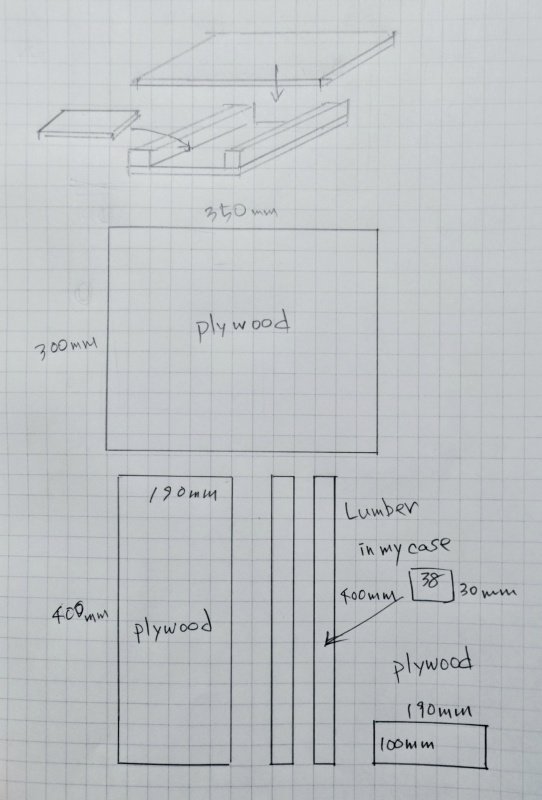 350mm
plywood
300mm
190mm
400mm
plywood
Lumber
in my case
400mm
38
30mm
plywood
190mm
100mm